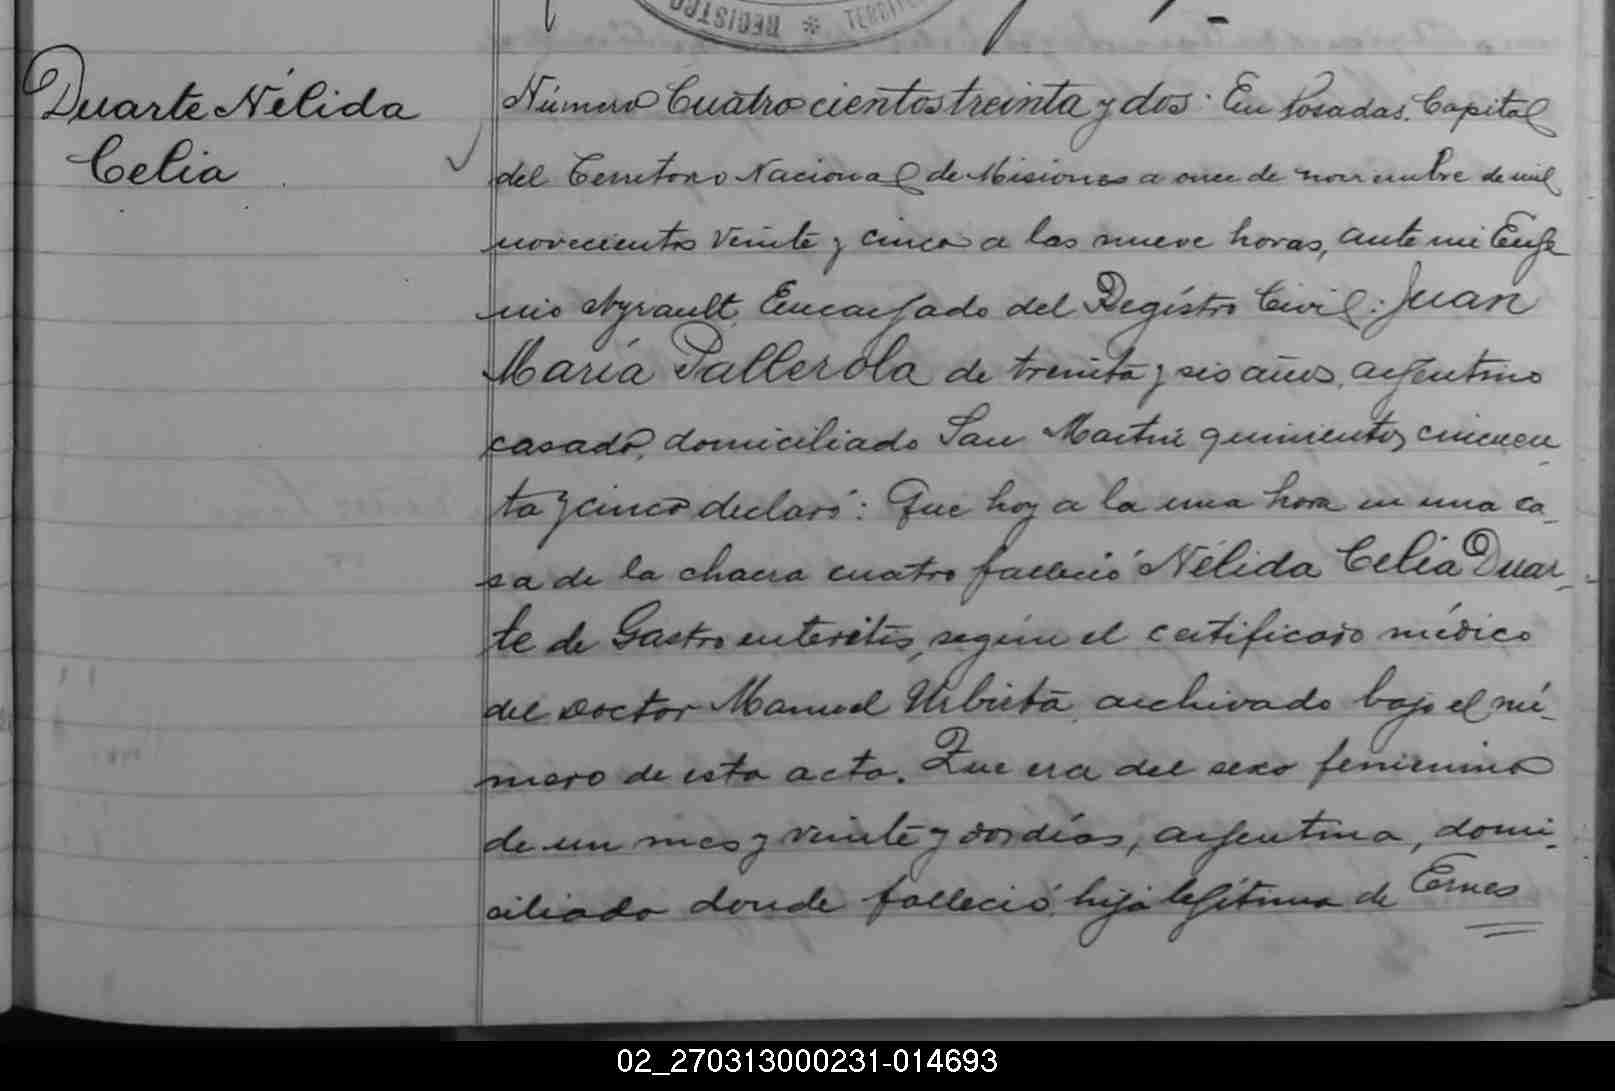 REGISTRO * TERRITO
Duarte Nélida
Celia
Número Cuatrocientos treinta y dos. En Posadas, Capital
del Territorio Nacional de Misiones a once de noviembre de mil
novecientos veinte y cinco a las nueve horas, ante mi Euge
nio Ayrault, Encargado del Registro Civil: Juan
María Pallerola de treinta y seis años, argentino
casado, domiciliado San Martín quinientos cincuen
ta y cinco declaró: Que hoy a la una hora en una ca-
sa de la chacra cuatro falleció Nélida Celia Duar-
te de Gastro enteritis, según el certificado médico
del Doctor Manuel Urbieta, archivado bajo el nú-
mero de esta acta. Que era del sexo femenino
de un mes y veinte y dos días, argentina, domi-
ciliada donde falleció, hija legítima de Ernes
02_270313000231-014693